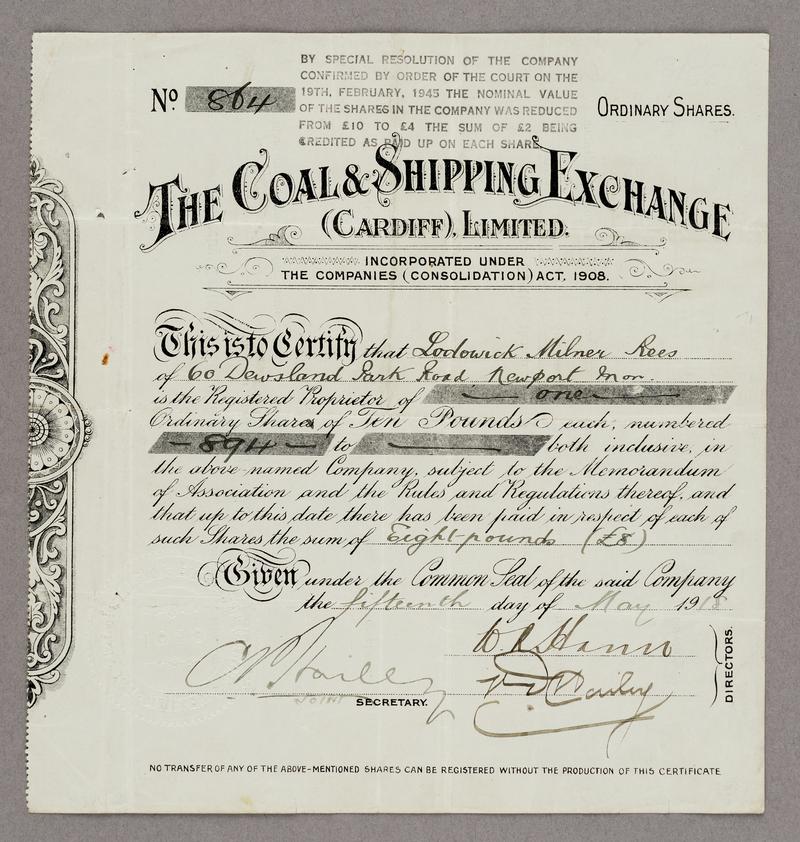 BY SPECIAL RESOLUTION OF THE COMPANY
CONFIRMED BY ORDER OF THE COURT ON THE
19TH, FEBRUARY, 1945 THE NOMINAL VALUE
OF THE SHARES IN THE COMPANY WAS REDUCED
FROM £10 TO £4 THE SUM OF £2 BEING
CREDITED AS PAID UP ON EACH SHARE
No 864
ORDINARY SHARES.
THE COAL & SHIPPING EXCHANGE
(CARDIFF), LIMITED.
INCORPORATED UNDER
THE COMPANIES (CONSOLIDATION) ACT, 1908.
This is to Certify that Lodowick Milner Rees
of 60 Dewsland Park Road Newport Mon.
is the Registered Proprietor of — one —
Ordinary Shares of Ten Pounds each, numbered
— 894 — to — both inclusive, in
the above-named Company, subject to the Memorandum
of Association and the Rules and Regulations thereof, and
that up to this date there has been paid in respect of each of
such Shares the sum of Eight pounds (£8)
Given under the Common Seal of the said Company
the fifteenth day of May 1918
JOINT SECRETARY.
DIRECTORS.
NO TRANSFER OF ANY OF THE ABOVE-MENTIONED SHARES CAN BE REGISTERED WITHOUT THE PRODUCTION OF THIS CERTIFICATE